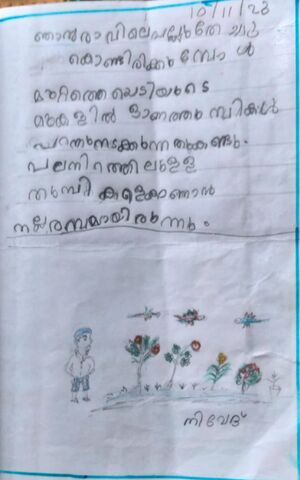 10/11/23
ഞാൻ രാവിലെ പല്ലുതേ ച്ചു
കൊണ്ടിരിക്കുമ്പോൾ
മുറ്റത്തെ ചെടിയുടെ
മുകളിൽ ഓണത്തുമ്പികൾ
പറന്നുനടക്കുന്നതുകണ്ടു.
പലനിറത്തിലുള്ള
തുമ്പി കളെകാണാൻ
നല്ലരസമായിരുന്നു.
നിവേദ്